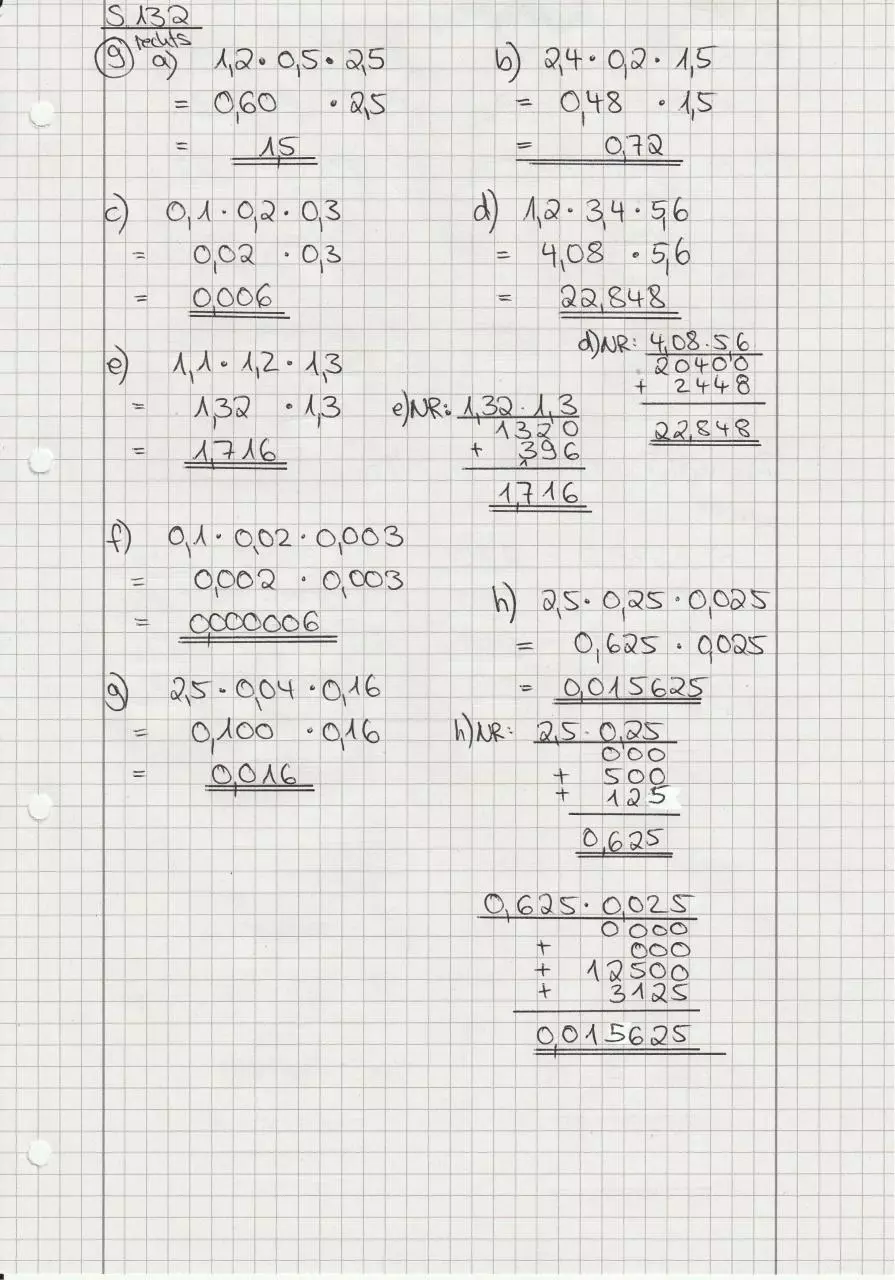 S. 132
rechts
9 a) 1,2 · 0,5 · 2,5
= 0,60 · 2,5
= 1,5
b) 2,4 · 0,2 · 1,5
= 0,48 · 1,5
= 0,72
c) 0,1 · 0,2 · 0,3
= 0,02 · 0,3
= 0,006
d) 1,2 · 3,4 · 5,6
= 4,08 · 5,6
= 22,848
d) NR: 4,08 · 5,6
20400
+ 2448
22,848
e) 1,1 · 1,2 · 1,3
= 1,32 · 1,3
= 1,716
e) NR: 1,32 · 1,3
1320
+ 396
1
1,716
f) 0,1 · 0,02 · 0,003
= 0,002 · 0,003
= 0,000006
g) 2,5 · 0,04 · 0,16
= 0,100 · 0,16
= 0,016
h) 2,5 · 0,25 · 0,025
= 0,625 · 0,025
= 0,015625
h) NR: 2,5 · 0,25
000
+ 500
+ 125
0,625
0,625 · 0,025
0000
+ 000
+ 12500
+ 3125
0,015625